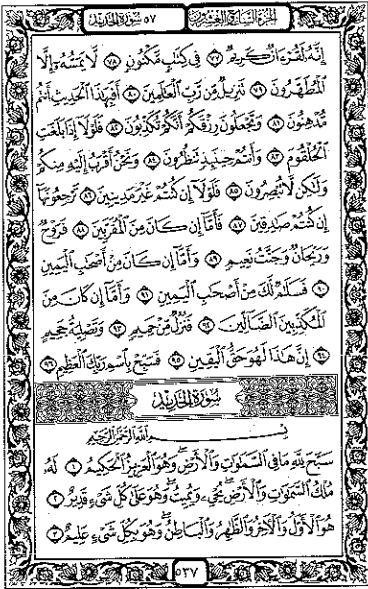 الجزء السابع والعشرون ٥٧ سورة الحديد
إِنَّهُ لَقُرْءَانٌ كَرِيمٌ ٧٧ فِى كِتَٰبٍ مَّكْنُونٍ ٧٨ لَّا يَمَسُّهُۥٓ إِلَّا
ٱلْمُطَهَّرُونَ ٧٩ تَنزِيلٌ مِّن رَّبِّ ٱلْعَٰلَمِينَ ٨٠ أَفَبِهَٰذَا ٱلْحَدِيثِ أَنتُم
مُّدْهِنُونَ ٨١ وَتَجْعَلُونَ رِزْقَكُمْ أَنَّكُمْ تُكَذِّبُونَ ٨٢ فَلَوْلَآ إِذَا بَلَغَتِ
ٱلْحُلْقُومَ ٨٣ وَأَنتُمْ حِينَئِذٍ تَنظُرُونَ ٨٤ وَنَحْنُ أَقْرَبُ إِلَيْهِ مِنكُمْ
وَلَٰكِن لَّا تُبْصِرُونَ ٨٥ فَلَوْلَآ إِن كُنتُمْ غَيْرَ مَدِينِينَ ٨٦ تَرْجِعُونَهَآ
إِن كُنتُمْ صَٰدِقِينَ ٨٧ فَأَمَّآ إِن كَانَ مِنَ ٱلْمُقَرَّبِينَ ٨٨ فَرَوْحٌ
وَرَيْحَانٌ وَجَنَّتُ نَعِيمٍ ٨٩ وَأَمَّآ إِن كَانَ مِنْ أَصْحَٰبِ ٱلْيَمِينِ
٩٠ فَسَلَٰمٌ لَّكَ مِنْ أَصْحَٰبِ ٱلْيَمِينِ ٩١ وَأَمَّآ إِن كَانَ مِنَ
ٱلْمُكَذِّبِينَ ٱلضَّآلِّينَ ٩٢ فَنُزُلٌ مِّنْ حَمِيمٍ ٩٣ وَتَصْلِيَةُ جَحِيمٍ
٩٤ إِنَّ هَٰذَا لَهُوَ حَقُّ ٱلْيَقِينِ ٩٥ فَسَبِّحْ بِٱسْمِ رَبِّكَ ٱلْعَظِيمِ ٩٦
سورة الحديد
بِسْمِ ٱللَّهِ ٱلرَّحْمَٰنِ ٱلرَّحِيمِ
سَبَّحَ لِلَّهِ مَا فِى ٱلسَّمَٰوَٰتِ وَٱلْأَرْضِ وَهُوَ ٱلْعَزِيزُ ٱلْحَكِيمُ ١ لَهُۥ
مُلْكُ ٱلسَّمَٰوَٰتِ وَٱلْأَرْضِ يُحْىِۦ وَيُمِيتُ وَهُوَ عَلَىٰ كُلِّ شَىْءٍ قَدِيرٌ ٢
هُوَ ٱلْأَوَّلُ وَٱلْءَاخِرُ وَٱلظَّٰهِرُ وَٱلْبَاطِنُ وَهُوَ بِكُلِّ شَىْءٍ عَلِيمٌ ٣
٥٣٧